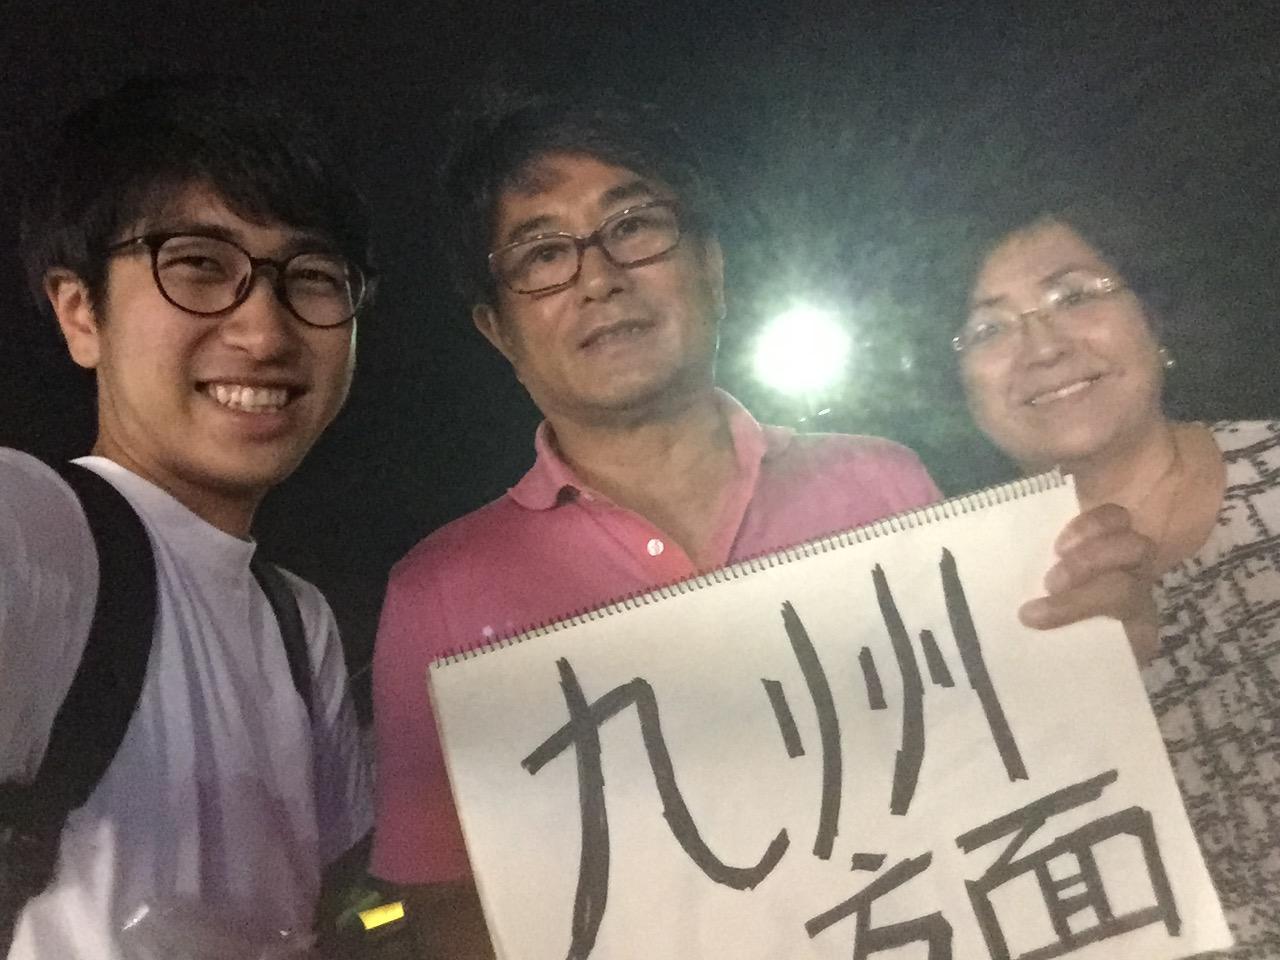 九州
方面